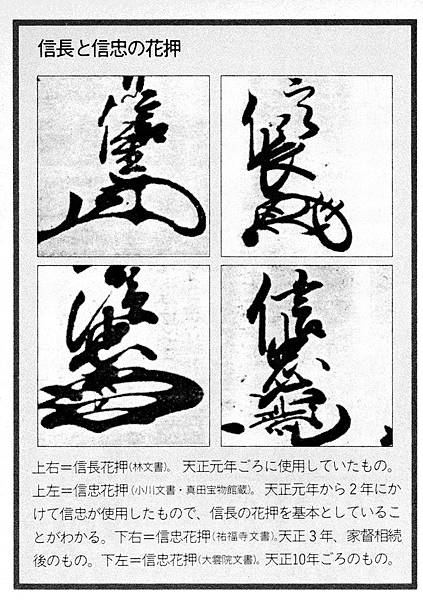 信長と信忠の花押
信長
信忠
上右＝信長花押(林文書)。 天正元年ごろに使用していたもの。
上左＝信忠花押(小川文書・真田宝物館蔵)。 天正元年から2年にか
けて信忠が使用したもので、信長の花押を基本としているこ
とがわかる。下右＝信忠花押(祐福寺文書)。天正3年、家督相続
後のもの。下左＝信忠花押(大雲院文書)。天正10年ごろのもの。